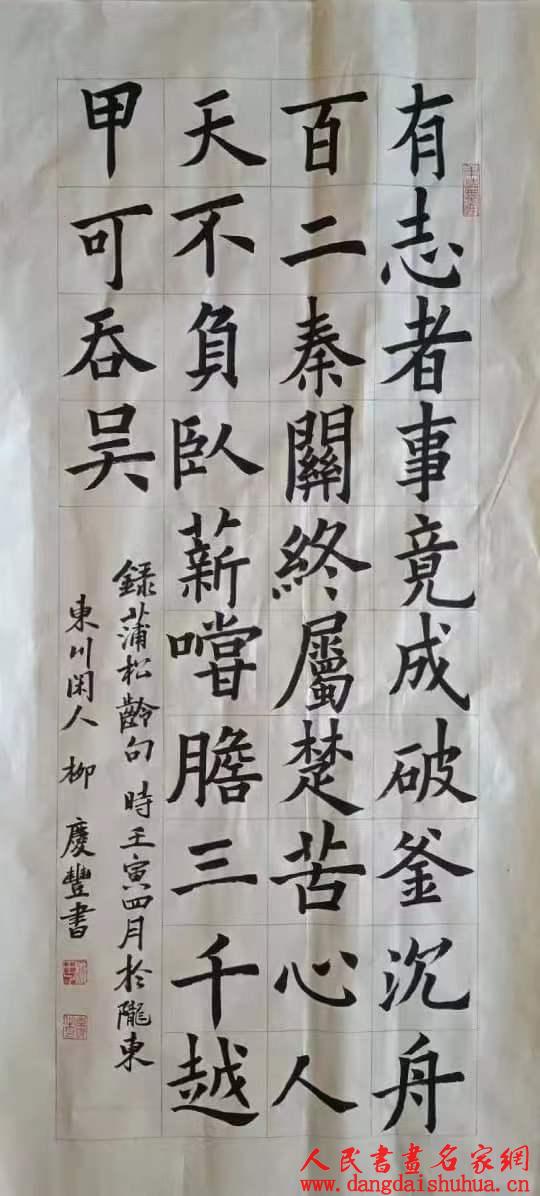 有志者事竟成破釜沉舟
百二秦關終屬楚苦心人
天不負臥薪嚐膽三千越
甲可吞吴
録蒲松齡句 時壬寅四月於隴東
東川閑人 柳慶豐書
人民書畫名家網
www.dangdaishuhua.cn